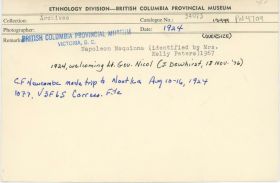 ETHNOLOGY DIVISION—BRITISH COLUMBIA PROVINCIAL MUSEUM
Collection Archives Catalogue No. PN 4709
Photographer Date 1924 (OVERSIZE)
Remarks BRITISH COLUMBIA PROVINCIAL MUSEUM
VICTORIA, B. C.
Napoleon Maquinna (identified by Mrs.
Kelly Peters) 1967
1924, welcoming Lt. Gov. Nicol (J Dewhirst, 18 Nov. '76)
C.F. Newcombe made trip to Nootka Aug 10-16, 1924
1077, V3F65 Corres. File